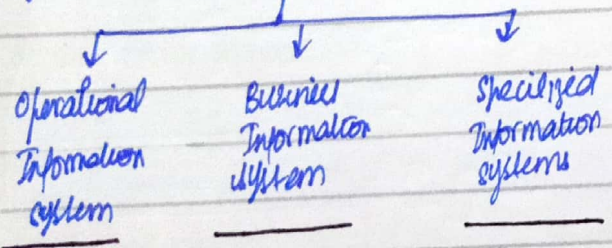 Operational
Information
system
Business
Information
system
Specilized
Information
systems